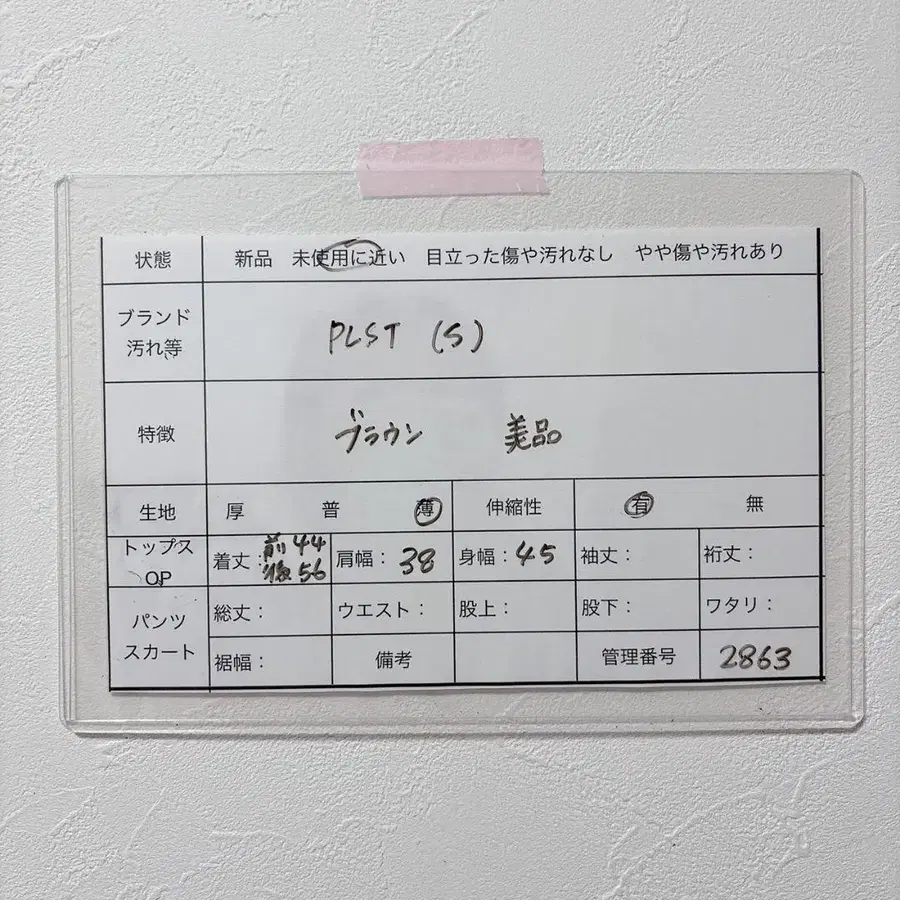 状態 新品 未使用に近い 目立った傷や汚れなし やや傷や汚れあり
ブランド
汚れ等
PLST (S)
特徴 ブラウン 美品
生地 厚 普 薄 伸縮性 有 無
トップス
OP
着丈：前44
後56
肩幅：38 身幅：45 袖丈： 裄丈：
パンツ
スカート
総丈： ウエスト： 股上： 股下： ワタリ：
裾幅： 備考 管理番号 2863